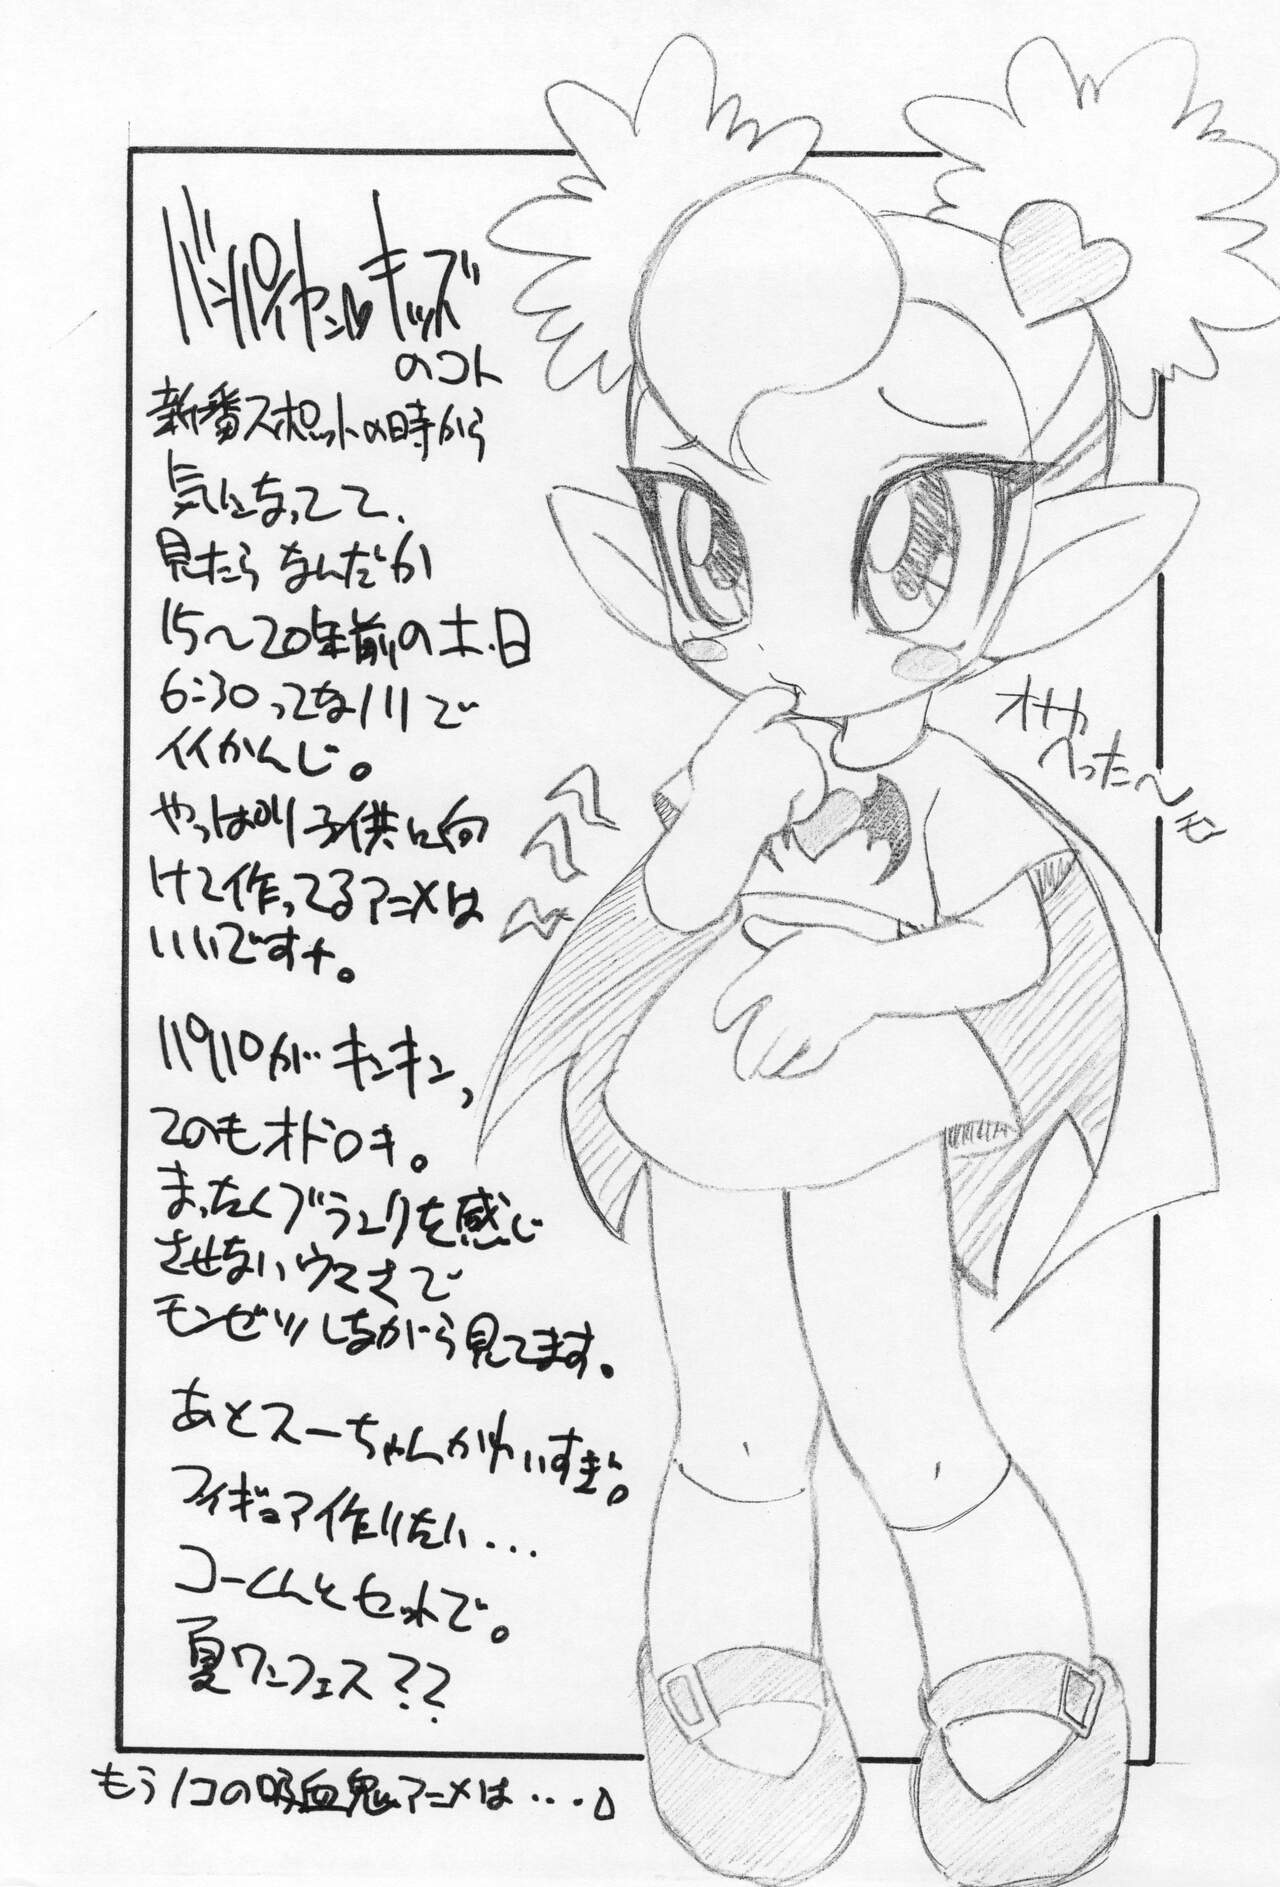 バンパイヤン♥キッズ
のコト
新番スポットの時から
気になってて、
見たらなんだか
15〜20年前の土・日
6:30ってなノリで
イイかんじ。
やっぱり子供に向
けて作ってるアニメは
いいですナ。
パパがキンキン、
てのもオドロキ。
まったくブランクを感じ
させないウマさで
モンゼツしながら見てます。
あとスーちゃんかわいすぎ。
フィギュア作りたい...
コーくんとセットで。
夏ワンフェス??
もう1コの吸血鬼アニメは・・・。
オナカ
へった〜